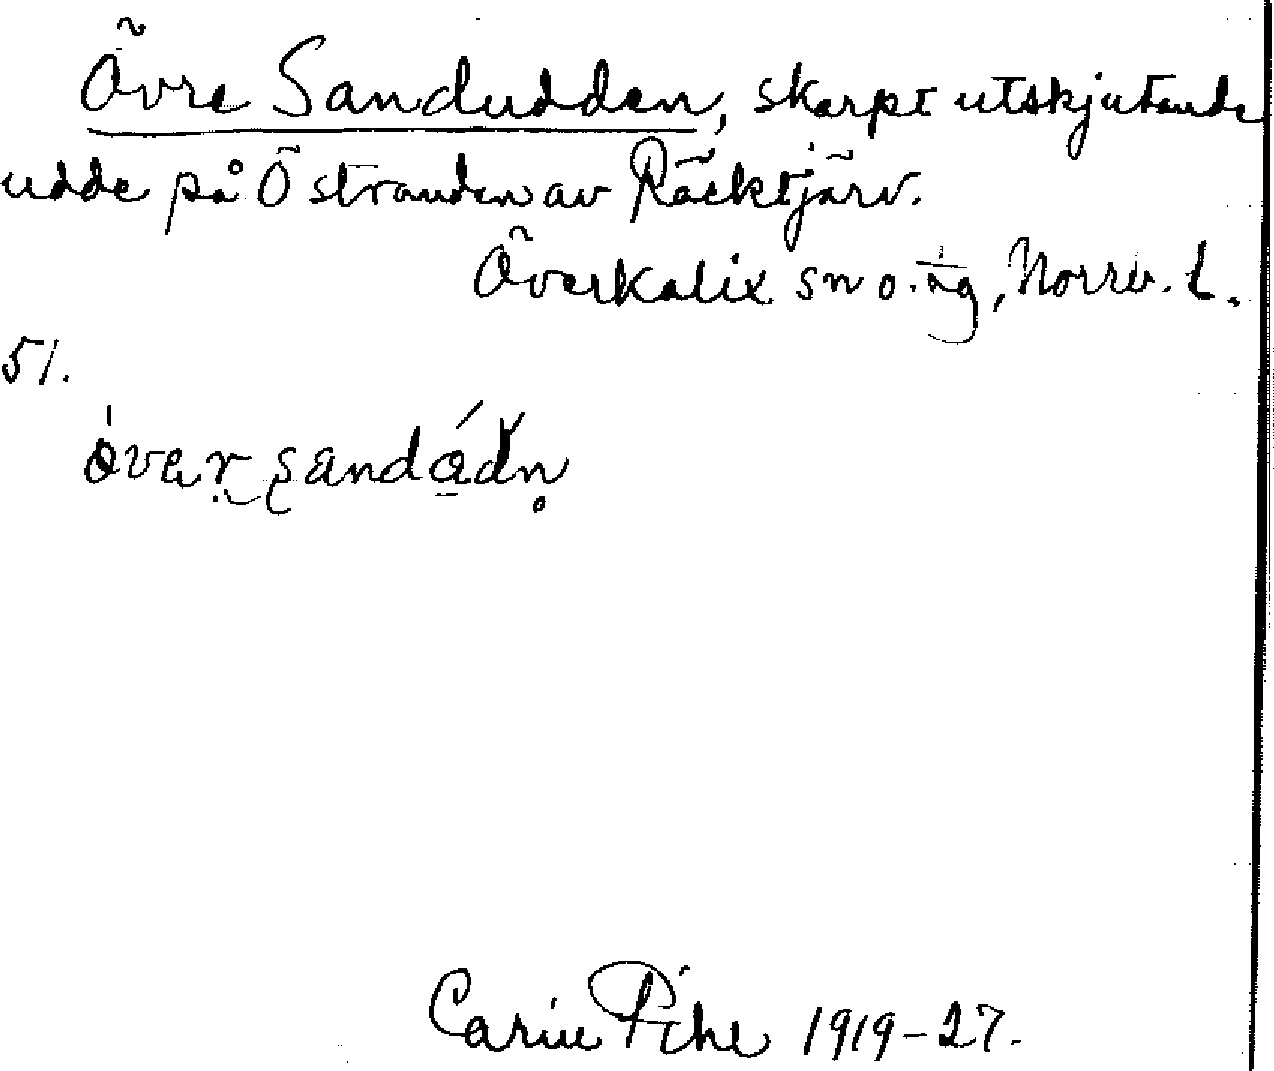 Övre Sandudden, skarpt utskjutande
udde på Östranden av Räcktjärv.
Överkalix sn o. tg, Norrb. l.
51.
óvaṛ sandádn̥
Carin Pihl 1919-27.